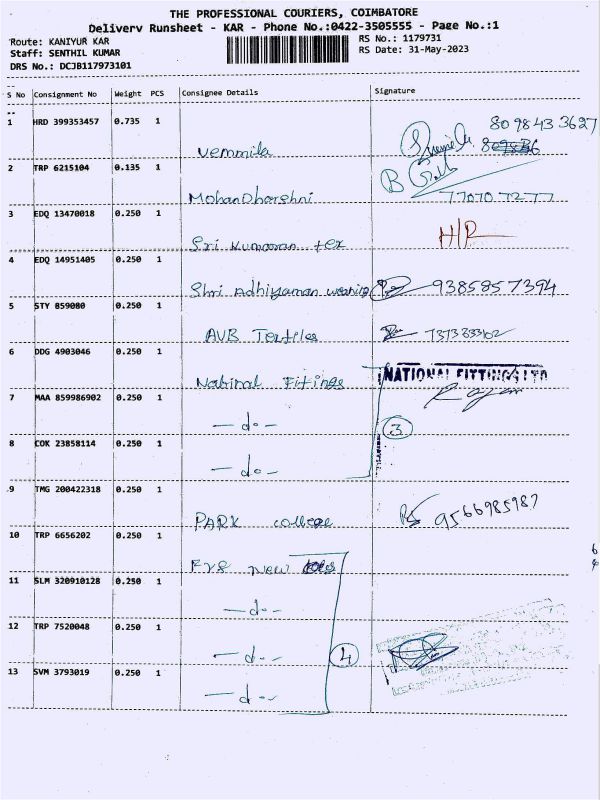 THE PROFESSIONAL COURIERS, COIMBATORE
Delivery Runsheet - KAR - Phone No.:0422-3505555 - Page No.:1
Route: KANIYUR KAR
RS No.: 1179731
Staff: SENTHIL KUMAR
RS Date: 31-May-2023
DRS No.: DCJB117973101
S No Consignment No Weight PCS Consignee Details Signature
1 HRD 399353457 0.735 1
809843 3627
Vemmila
2 TRP 6215104 0.135 1
MohanDharshni 77070 7277
3 EDQ 13470018 0.250 1
Sri Kumaran tex H/R
4 EDQ 14951405 0.250 1
Shri Adhiyaman weaving 9385857394
5 STY 859080 0.250 1
AVB Textiles 7373833102
6 DDG 4903046 0.250 1
National Fittings NATIONAL FITTINGS LTD
7 MAA 859986902 0.250 1
-do- 3
8 COK 23858114 0.250 1
-do-
9 TMG 200422318 0.250 1
PARK college 9566985987
10 TRP 6656202 0.250 1
New
11 SLM 320910128 0.250 1
-do-
12 TRP 7520048 0.250 1
-do- 4
13 SVM 3793019 0.250 1
-do-